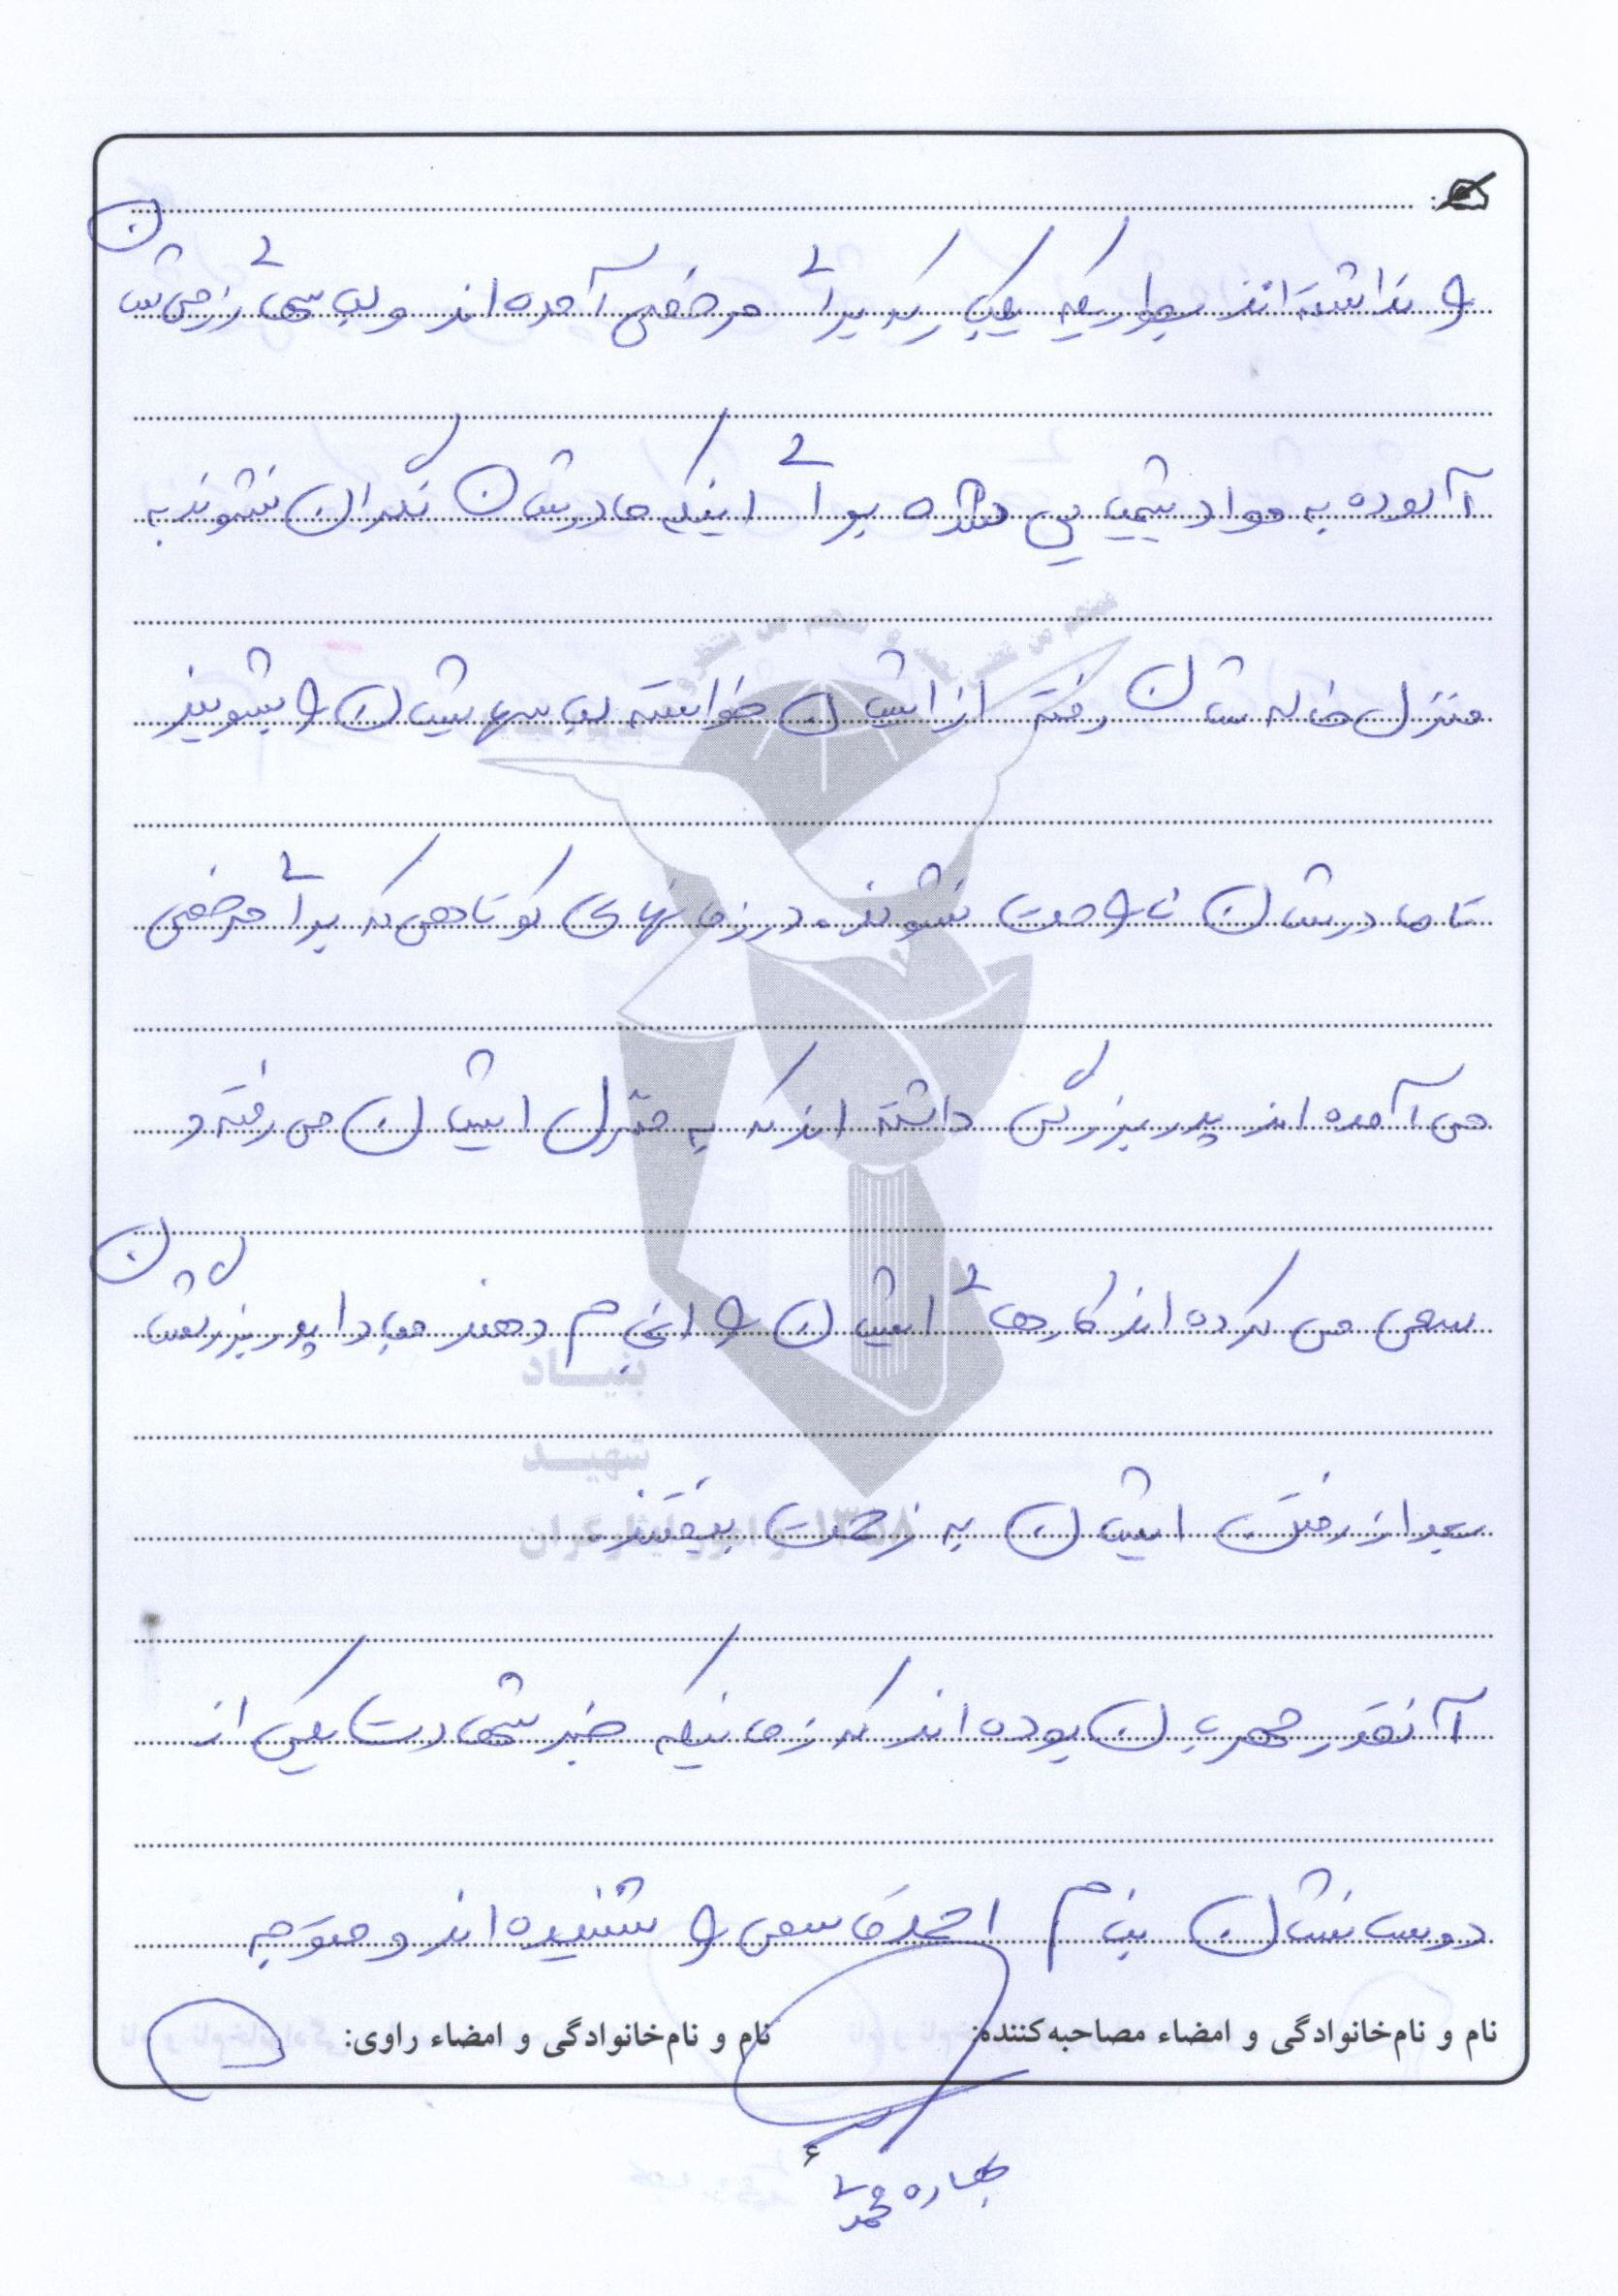 را نداشته اند بطوریکه یکبار که برای مرخصی آمده اند و لباسهای رزمی شان
آلوده به مواد شیمیایی شده برای اینکه مادرشان نگران نشوند به
منزل خاله شان رفته از ایشان خواسته لباسهایشان را بشویند
تا مادرشان ناراحت نشوند. در زمانهای کوتاهی که برای مرخصی
می آمده اند پدربزرگی داشته اند که به منزل ایشان می رفته و
سعی می کرده اند کارهای ایشان را انجام دهند مبادا پدربزرگشان
بعد از رفتن ایشان به زحمت بیفتند.
آنقدر مهربان بوده اند که زمانیکه خبر شهادت یکی از
دوستانشان بنام احمد قاسمی را شنیده اند و متوجه
نام و نام‌خانوادگی و امضاء مصاحبه‌کننده: نام و نام‌خانوادگی و امضاء راوی:
۶
بهاره محمدی
بنیـاد
شهیـد
و امور ایثارگران